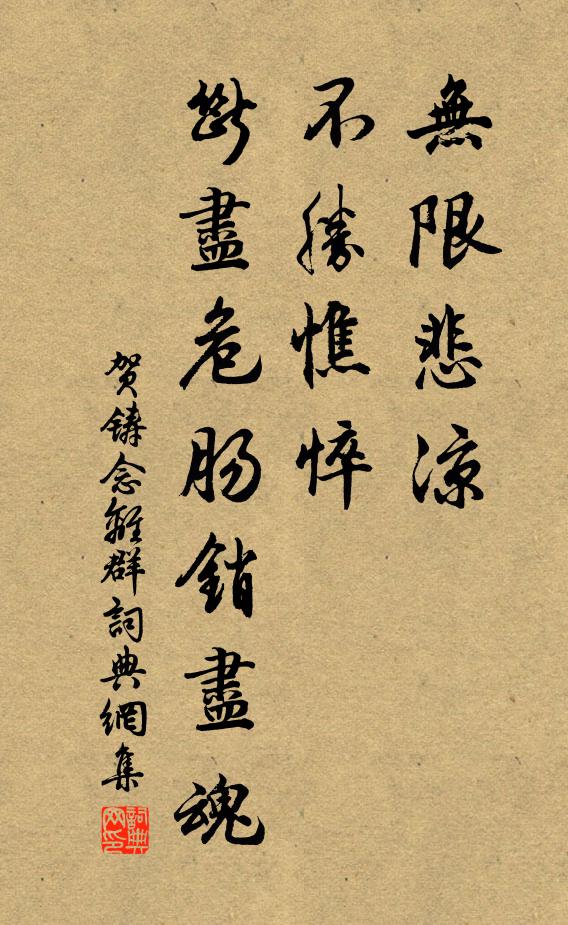 無限悲涼
不勝憔悴
斷盡危腸銷盡魂
贺鑄念離群詞典網集
詞典網印